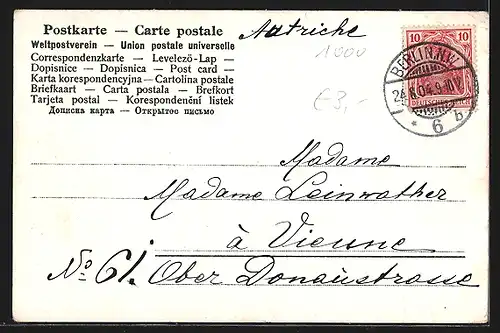 Postkarte — Carte postale
Autriche
Weltpostverein — Union postale universelle
Correspondenzkarte — Levelező-Lap —
Dopisnice — Dopisnica — Post card —
Karta korespondencyjna — Cartolina postale
Briefkaart — Carta postala — Brefkort
Tarjeta postal — Korespondenční listek
Дописна карта — Открытое письмо
1000
€3,-
10 10
BERLIN N.W.
6 b
Madame
Madame Leinwather
à Vienne
No 61. Ober Donaustrasse